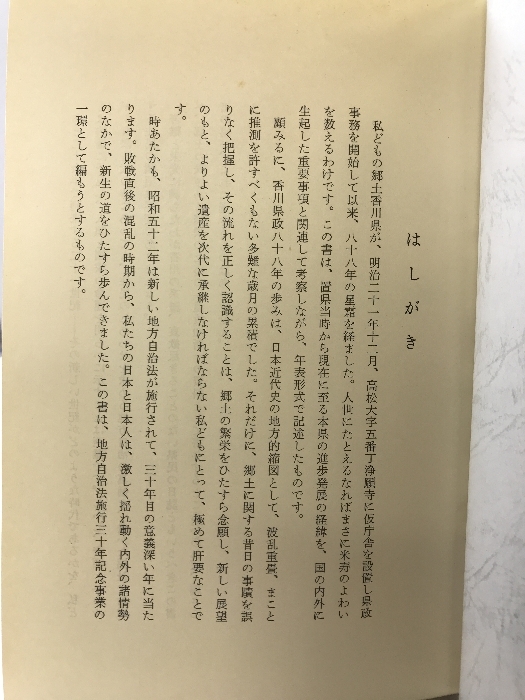 はしがき
私どもの郷土香川県が、明治二十一年十二月、高松大字五番丁浄願寺に仮庁舎を設置し県政
事務を開始して以来、八十八年の星霜を経ました。人世にたとえるなればまさに米寿のよわい
を数えるわけです。この書は、置県当時から現在に至る本県の進歩発展の経緯を、国の内外に
生起した重要事項と関連して考察しながら、年表形式で記述したものです。
顧みるに、香川県政八十八年の歩みは、日本近代史の地方的縮図として、波乱重畳、まこと
に推測を許すべくもない多難な歳月の累積でした。それだけに、郷土に関する昔日の事蹟を誤
りなく把握し、その流れを正しく認識することは、郷土の繁栄をひたすら念願し、新しい展望
のもと、よりよい遺産を次代に承継しなければならない私どもにとって、極めて肝要なことで
す。
時あたかも、昭和五十二年は新しい地方自治法が施行されて、三十年目の意義深い年に当た
ります。敗戦直後の混乱の時期から、私たちの日本と日本人は、激しく揺れ動く内外の諸情勢
のなかで、新生の道をひたすら歩んできました。この書は、地方自治法施行三十年記念事業の
一環として編もうとするものです。